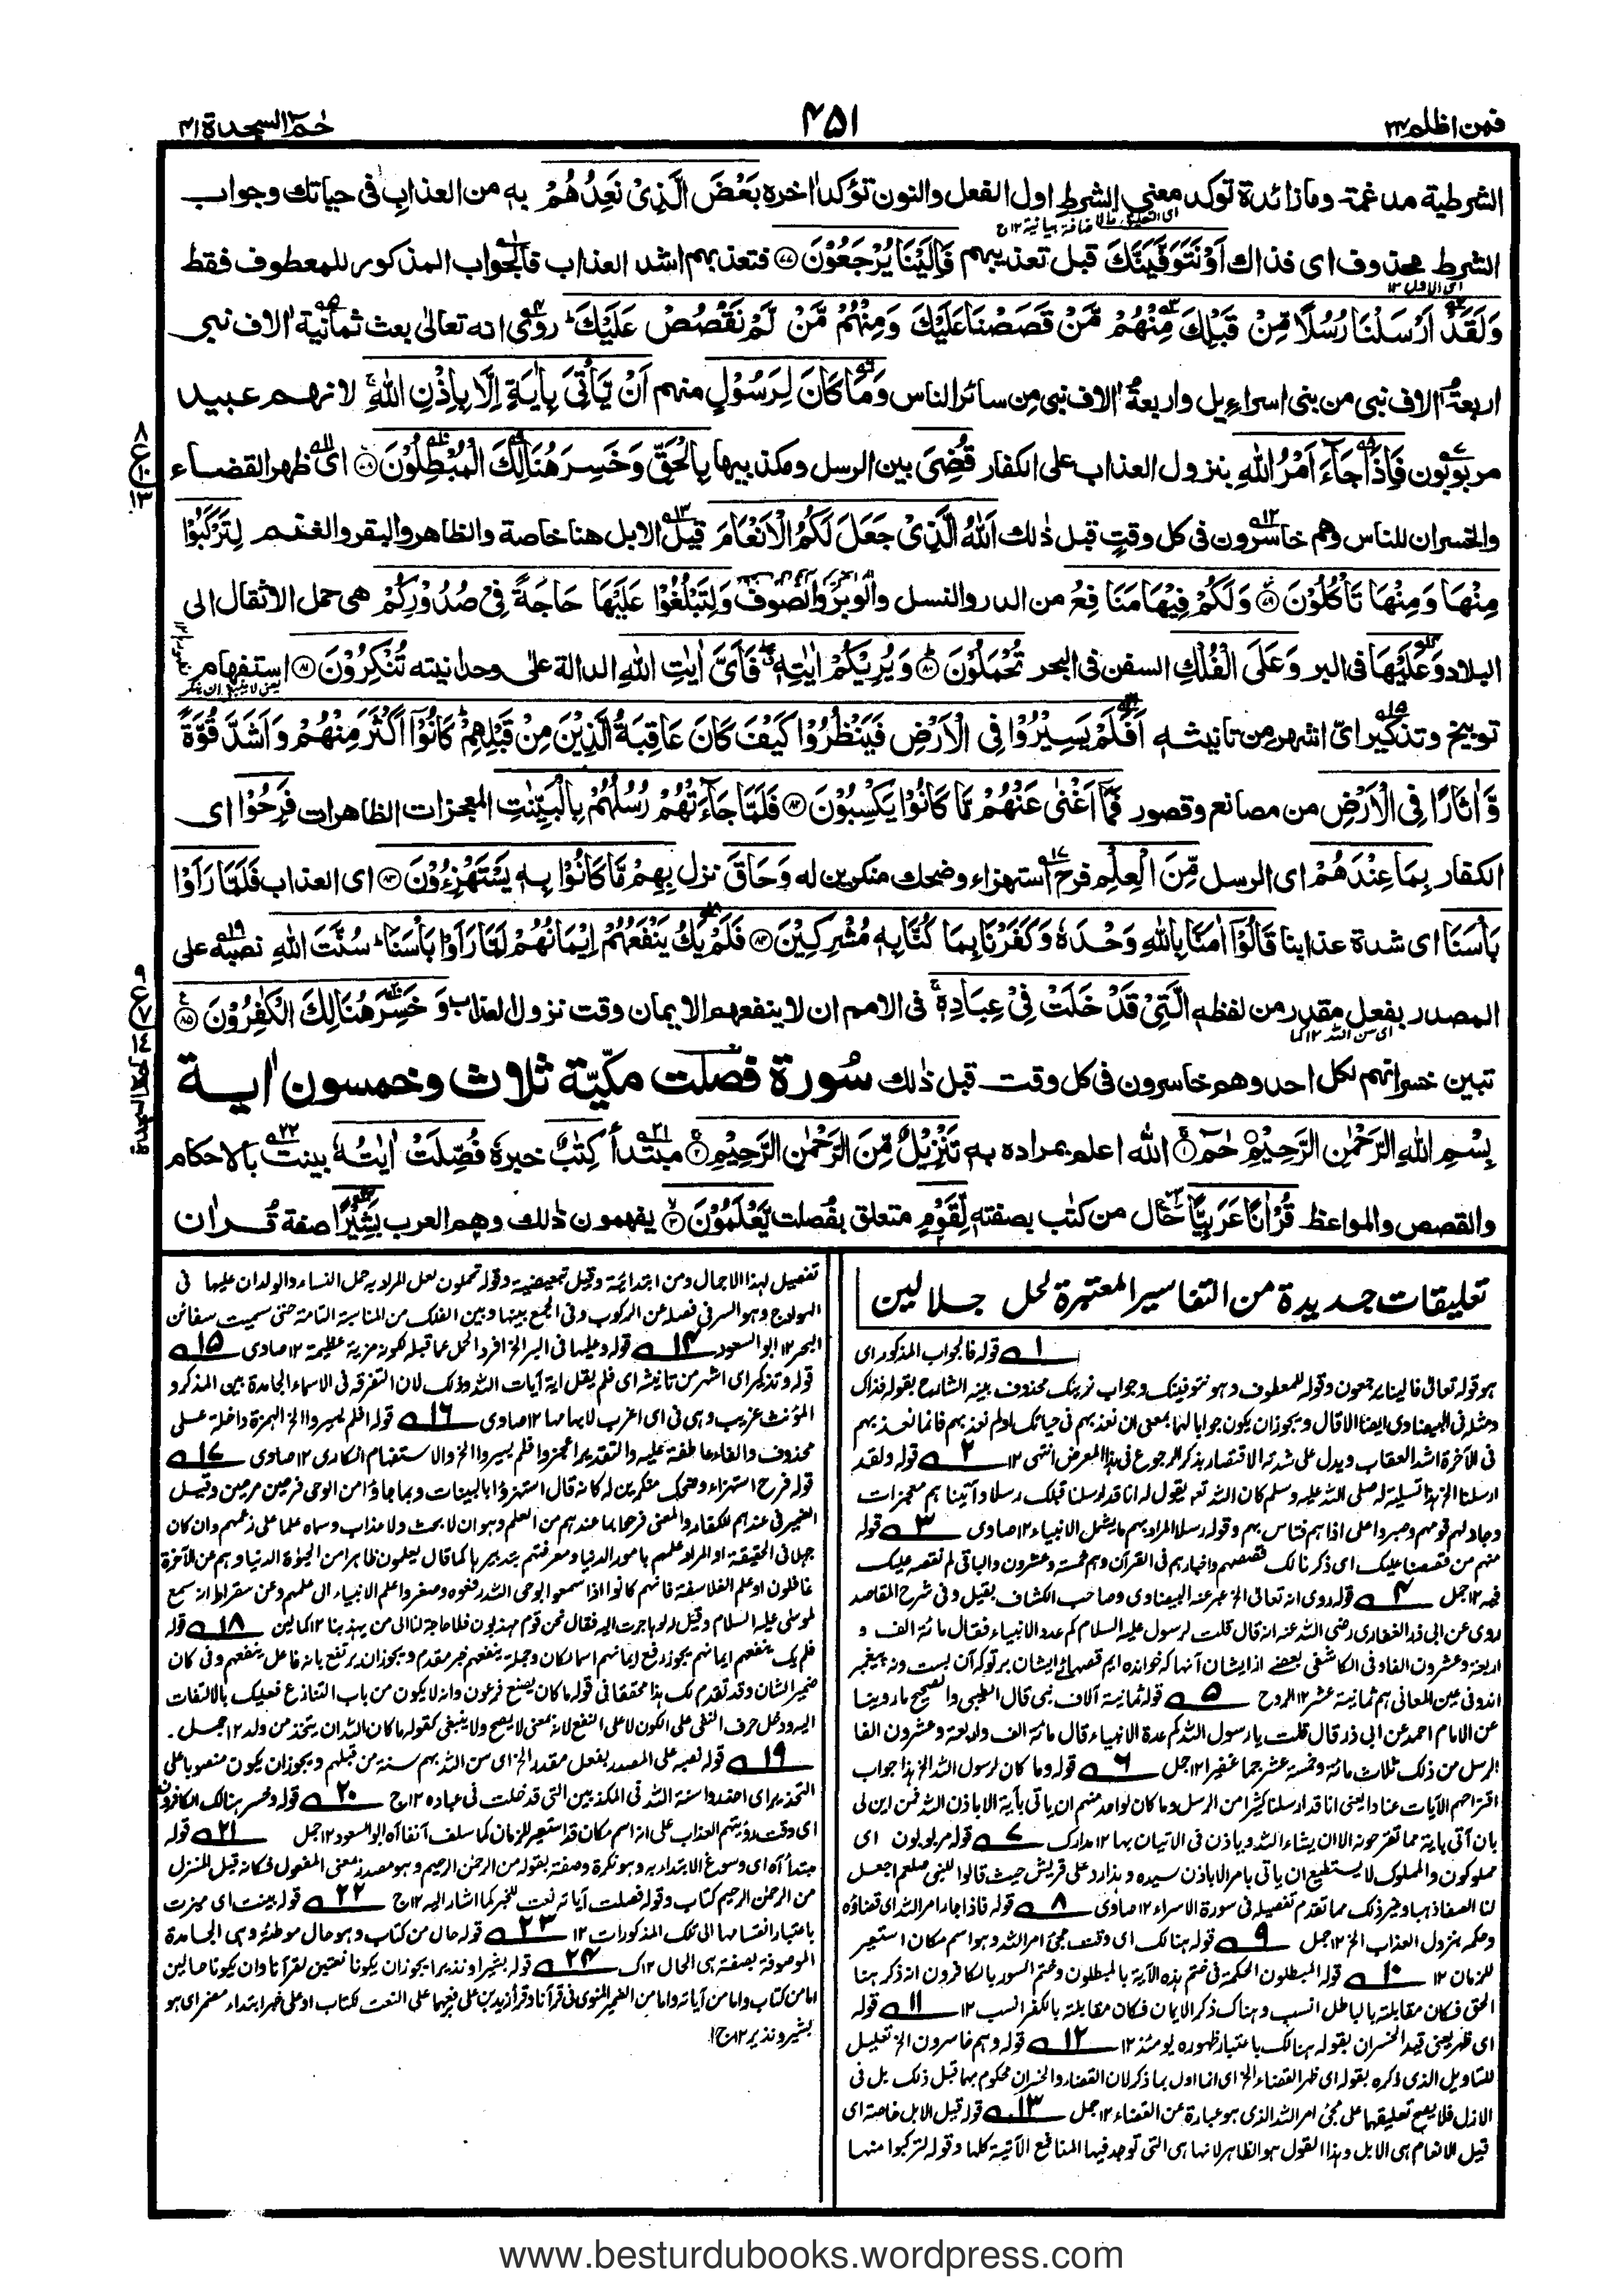 فمن اظلم ٢٤
٤٥١
حٰمٓ السجدة ٤١
الشرطية مدغمة وما زائدة تؤكد معنى الشرط اول الفعل والنون تؤكد اٰخره بَعْضَ الَّذِىْ نَعِدُهُمْ به من العذاب فى حياتك وجواب
الشرط محذوف اى فذاك اَوْ نَتَوَفَّيَنَّكَ قبل تعذيبهم فَاِلَيْنَا يُرْجَعُوْنَ ٧٧ فنعذبهم اشد العذاب فالجواب المذكور للمعطوف فقط
وَلَقَدْ اَرْسَلْنَا رُسُلًا مِّنْ قَبْلِكَ مِنْهُمْ مَّنْ قَصَصْنَا عَلَيْكَ وَمِنْهُمْ مَّنْ لَّمْ نَقْصُصْ عَلَيْكَ روى انه تعالىٰ بعث ثمانية اٰلاف نبى
اربعة اٰلاف نبى من بنى اسراءيل واربعة اٰلاف نبى من سائر الناس وَمَا كَانَ لِرَسُوْلٍ منهم اَنْ يَّاْتِىَ بِاٰيَةٍ اِلَّا بِاِذْنِ اللّٰهِ لانهم عبيد
مربوبون فَاِذَا جَآءَ اَمْرُ اللّٰهِ بنزول العذاب على الكفار قُضِىَ بين الرسل ومكذبيها بِالْحَقِّ وَخَسِرَ هُنَالِكَ الْمُبْطِلُوْنَ ٧٨ اى ظهر القضاء
والخسران للناس وهم خاسرون فى كل وقت قبل ذٰلك اَللّٰهُ الَّذِىْ جَعَلَ لَكُمُ الْاَنْعَامَ قيل الابل هنا خاصة والظاهر والبقر والغنم لِتَرْكَبُوْا
مِنْهَا وَمِنْهَا تَاْكُلُوْنَ ٧٩ وَلَكُمْ فِيْهَا مَنَافِعُ من الدر والنسل والوبر والصوف وَلِتَبْلُغُوْا عَلَيْهَا حَاجَةً فِىْ صُدُوْرِكُمْ هى حمل الاثقال الى
البلاد وَعَلَيْهَا فى البر وَعَلَى الْفُلْكِ السفن فى البحر تُحْمَلُوْنَ ٨٠ وَيُرِيْكُمْ اٰيٰتِهٖ فَاَىَّ اٰيٰتِ اللّٰهِ الدالة على وحدانيته تُنْكِرُوْنَ ٨١ استفهام
توبيخ وتذكير اىّ اشهر من تانيثه اَفَلَمْ يَسِيْرُوْا فِى الْاَرْضِ فَيَنْظُرُوْا كَيْفَ كَانَ عَاقِبَةُ الَّذِيْنَ مِنْ قَبْلِهِمْ كَانُوْٓا اَكْثَرَ مِنْهُمْ وَاَشَدَّ قُوَّةً
وَّاٰثَارًا فِى الْاَرْضِ من مصانع وقصور فَمَآ اَغْنٰى عَنْهُمْ مَّا كَانُوْا يَكْسِبُوْنَ ٨٢ فَلَمَّا جَآءَتْهُمْ رُسُلُهُمْ بِالْبَيِّنٰتِ المعجزات الظاهرات فَرِحُوْا اى
الكفار بِمَا عِنْدَهُمْ اى الرسل مِّنَ الْعِلْمِ فرح استهزاء وضحك منكرين له وَحَاقَ نزل بِهِمْ مَّا كَانُوْا بِهٖ يَسْتَهْزِءُوْنَ ٨٣ اى العذاب فَلَمَّا رَاَوْا
بَاْسَنَا اى شدة عذابنا قَالُوْٓا اٰمَنَّا بِاللّٰهِ وَحْدَهٗ وَكَفَرْنَا بِمَا كُنَّا بِهٖ مُشْرِكِيْنَ ٨٤ فَلَمْ يَكُ يَنْفَعُهُمْ اِيْمَانُهُمْ لَمَّا رَاَوْا بَاْسَنَا سُنَّتَ اللّٰهِ نصبه على
المصدر بفعل مقدر من لفظه الَّتِىْ قَدْ خَلَتْ فِىْ عِبَادِهٖ فى الامم ان لا ينفعهم الايمان وقت نزول لعذاب وَخَسِرَ هُنَالِكَ الْكٰفِرُوْنَ ٨٥
تبين خسرانهم لكل احد وهم خاسرون فى كل وقت قبل ذٰلك سُورة فصّلت مكيّة ثلاث وخمسون اٰية
بِسْمِ اللّٰهِ الرَّحْمٰنِ الرَّحِيْمِ حٰمٓ ١ الله اعلم بمراده به تَنْزِيْلٌ مِّنَ الرَّحْمٰنِ الرَّحِيْمِ ٢ مبتدأ كِتٰبٌ خبره فُصِّلَتْ اٰيٰتُهٗ بينت بالاحكام
والقصص والمواعظ قُرْاٰنًا عَرَبِيًّا حال من كتٰب بصفته لِّقَوْمٍ متعلق بفصلت يَّعْلَمُوْنَ ٣ يفهمون ذٰلك وهم العرب بَشِيْرًا صفة قراٰن
تعليقات جديدة من التفاسير المعتبرة لحل جلالين
١ قوله فالجواب المذكور اى
هو قوله تعالى فالينا يرجعون وقوله للمعطوف وهو نتوفينك وجواب نرينك محذوف بينه الشارح بقوله فذاك
ومثله فى البيضاوى ايضا الا قال ويجوز ان يكون جوابا لهما بمعنى ان نعذبهم فى حياتك اولم نعذبهم فانا نعذبهم
فى الآخرة اشد العقاب ويدل على شدته الاقتصار بذكر الرجوع فى هذا المعرض انتهى ١٢ ٢ قوله ولقد
ارسلنا الخ هذا تسلية له صلى الله عليه وسلم كان الله تعه يقول له انا قد ارسلنا قبلك رسلا وآتيناهم معجزات
وجادلهم قومهم وصبروا على اذاهم فتاس بهم وقوله رسلا المراد بهم ما يشمل الانبياء ١٢ صاوى ٣ قوله
منهم من قصصنا عليك اى ذكرنا لك قصصهم واخبارهم فى القرآن وهم خمسة وعشرون والباقى لم نقصه عليك
فيه ١٢ جمل ٤ قوله روى انه تعالى الخ عبر عنه البيضاوى وصاحب الكشاف بقيل وفى شرح المقاصد
روى عن ابى ذر الغفارى رضى الله عنه انه قال قلت لرسول عليه السلام كم عدد الانبياء فقال مائة الف و
اربعة وعشرون الفا وفى الكاشفى بعضے از ايشان آنها كه خوانده ايم قصهائے ايشان بر تو كه آن بست ونه پيغمبر
اند وفى عين المعانى هم ثمانية عشر ١٢ الروح ٥ قوله ثمانية آلاف نبى قال الطيبى والصحيح ما روينا
عن الامام احمد عن ابى ذر قال قلت يا رسول الله كم عدة الانبياء قال مائة الف واربعة وعشرون الفا
الرسل من ذلك ثلاث مائة وخمسة عشر جما غفيرا ١٢ جمل ٦ قوله وما كان لرسول الله الخ هذا جواب
اقتراحهم الآيات عنادا يعنى انا قد ارسلنا كثيرا من الرسل وما كان لواحد منهم ان ياتى بآية الا باذن الله فمن اين لى
بان آتى بآية مما تقترحونه الا ان يشاء الله وياذن فى الاتيان بها ١٢ مدارك ٧ قوله مربوبون اى
مملوكون والمملوك لا يستطيع ان ياتى بامر الا باذن سيده وهذا رد على قريش حيث قالوا للنبى صلعم اجعل
لنا الصفا ذهبا وغير ذلك مما تقدم تفصيله فى سورة الاسراء ١٢ صاوى ٨ قوله فاذا جاء امر الله اى قضاؤه
وحكمه بنزول العذاب الخ ١٢ جمل ٩ قوله هنالك اى وقت مجئ امر الله وهو اسم مكان استعير
للزمان ١٢ ١٠ قوله المبطلون الحكمة فى ختم هذه الآية بالمبطلون وختم السورة بالكافرون انه ذكر هنا
الحق فكان مقابلته بالباطل انسب وهناك ذكر الايمان فكان مقابلته بالكفر انسب ١٢ ١١ قوله
اى ظهر يعنى قيد الخسران بقوله هنالك باعتبار ظهوره يومئذ ١٢ ١٢ قوله وهم خاسرون الخ تعليل
للتاويل الذى ذكره بقوله اى ظهر القضاء الخ اى انما اول بما ذكر لان القضاء والخسران محكوم بهما قبل ذلك بل فى
الازل فلا يصح تعليقهما على مجئ امر الله الذى هو عبارة عن القضاء ١٢ جمل ١٣ قوله قيل الابل خاصة اى
قيل الانعام هى الابل وهذا القول هو الظاهر لانها هى التى توجد فيها المنافع الآتية كلها وقوله لتركبوا منها
تفصيل لهذا الاجمال ومن ابتدائية وقيل تبعيضية وقوله تحملون لعل المراد به حمل النساء والولدان عليها فى
الهوادج وهو السر فى فصله عن الركوب وفى الجمع بينها وبين الفلك من المناسبة التامة حتى سميت سفائن
البحر ١٢ ابو السعود ١٤ قوله وعليها فى البر الخ افرد الحمل عما قبله لكونه مزية عظيمة ١٢ صاوى ١٥
قوله وتذكير اى اشهر من تانيثه اى فلم يقل اية آيات الله وذلك لان التفرقة فى الاسماء الجامدة بين المذكر و
المؤنث غريب وهى فى اى اغرب لابهامها ١٢ صاوى ١٦ قوله افلم يسيروا الخ الهمزة داخلة على
محذوف والفاء عاطفة عليه والتقدير اعجزوا فلم يسيروا الخ والاستفهام انكارى ١٢ صاوى ١٧
قوله فرح استهزاء وضحك منكرين له كانه قال استهزؤا بالبينات وبما جاؤا من الوحى فرحين مرحين وقيل
الضمير فى عندهم للكفار والمعنى فرحوا بما عندهم من العلم وهو ان لا بعث ولا عذاب وسماه علما على زعمهم وان كان
جهلا فى الحقيقة او المراد علمهم بامور الدنيا ومعرفتهم بتدبيرها كما قال يعلمون ظاهرا من الحيوة الدنيا وهم عن الآخرة
غافلون او علم الفلاسفة فانهم كانوا اذا سمعوا بوحى الله دفعوه وصغروا علم الانبياء الى علمهم وعن سقراط انه سمع
لموسى عليه السلام وقيل له لو هاجرت اليه فقال نحن قوم مهذبون فلا حاجة لنا الى من يهذبنا ١٢ كمالين ١٨ قوله
فلم يك ينفعهم ايمانهم يجوز رفع ايمانهم اسما لكان وجملة ينفعهم خبر مقدم ويجوز ان يرتفع بانه فاعل ينفعهم وفى كان
ضمير الشان وقد تقدم لك هذا محققا فى قوله ما كان يصنع فرعون وانه لا يكون من باب التنازع فعليك بالالتفات
اليه ودخل حرف النفى على الكون لا على النفع لانه بمعنى لا يصح ولا ينبغى كقوله ما كان لله ان يتخذ من ولد ١٢ جمل.
١٩ قوله نصبه على المصدر بفعل مقدر الخ اى سن الله بهم سنة من قبلهم ويجوز ان يكون منصوبا على
التحذير اى احذروا سنة الله فى المكذبين التى قد خلت فى عباده ١٢ ج ٢٠ قوله وخسر هنالك الكافرون
اى وقت رؤيتهم العذاب على انه اسم مكان قد استعير للزمان كما سلف آنفا اه ابو السعود ١٢ جمل ٢١ قوله
مبتدأ اه اى وسوغ الابتداء به وهو نكرة وصفته بقوله من الرحمٰن الرحيم وهو مصدر بمعنى المفعول فكانه قيل المنزل
من الرحمٰن الرحيم كتاب وقوله فصلت آياته نعت للخبر كما اشار اليه ١٢ ج ٢٢ قوله بينت اى ميزت
باعتبار انقسامها الى تلك المذكورات ١٢ ٢٣ قوله حال من كتاب وهو حال موطئة وهى الجامدة
الموصوفة بصفة هى الحال ١٢ ك ٢٤ قوله بشيرا ونذيرا يجوز ان يكونا نعتين لقرآنا وان يكونا حالين
اما من كتاب واما من آياته واما من الضمير المنوى فى قرآنا وقرأ زيد بن على برفعهما على النعت لكتاب او على خبر ابتداء مضمر اى هو
بشير ونذير ١٢ ج
www.besturdubooks.wordpress.com